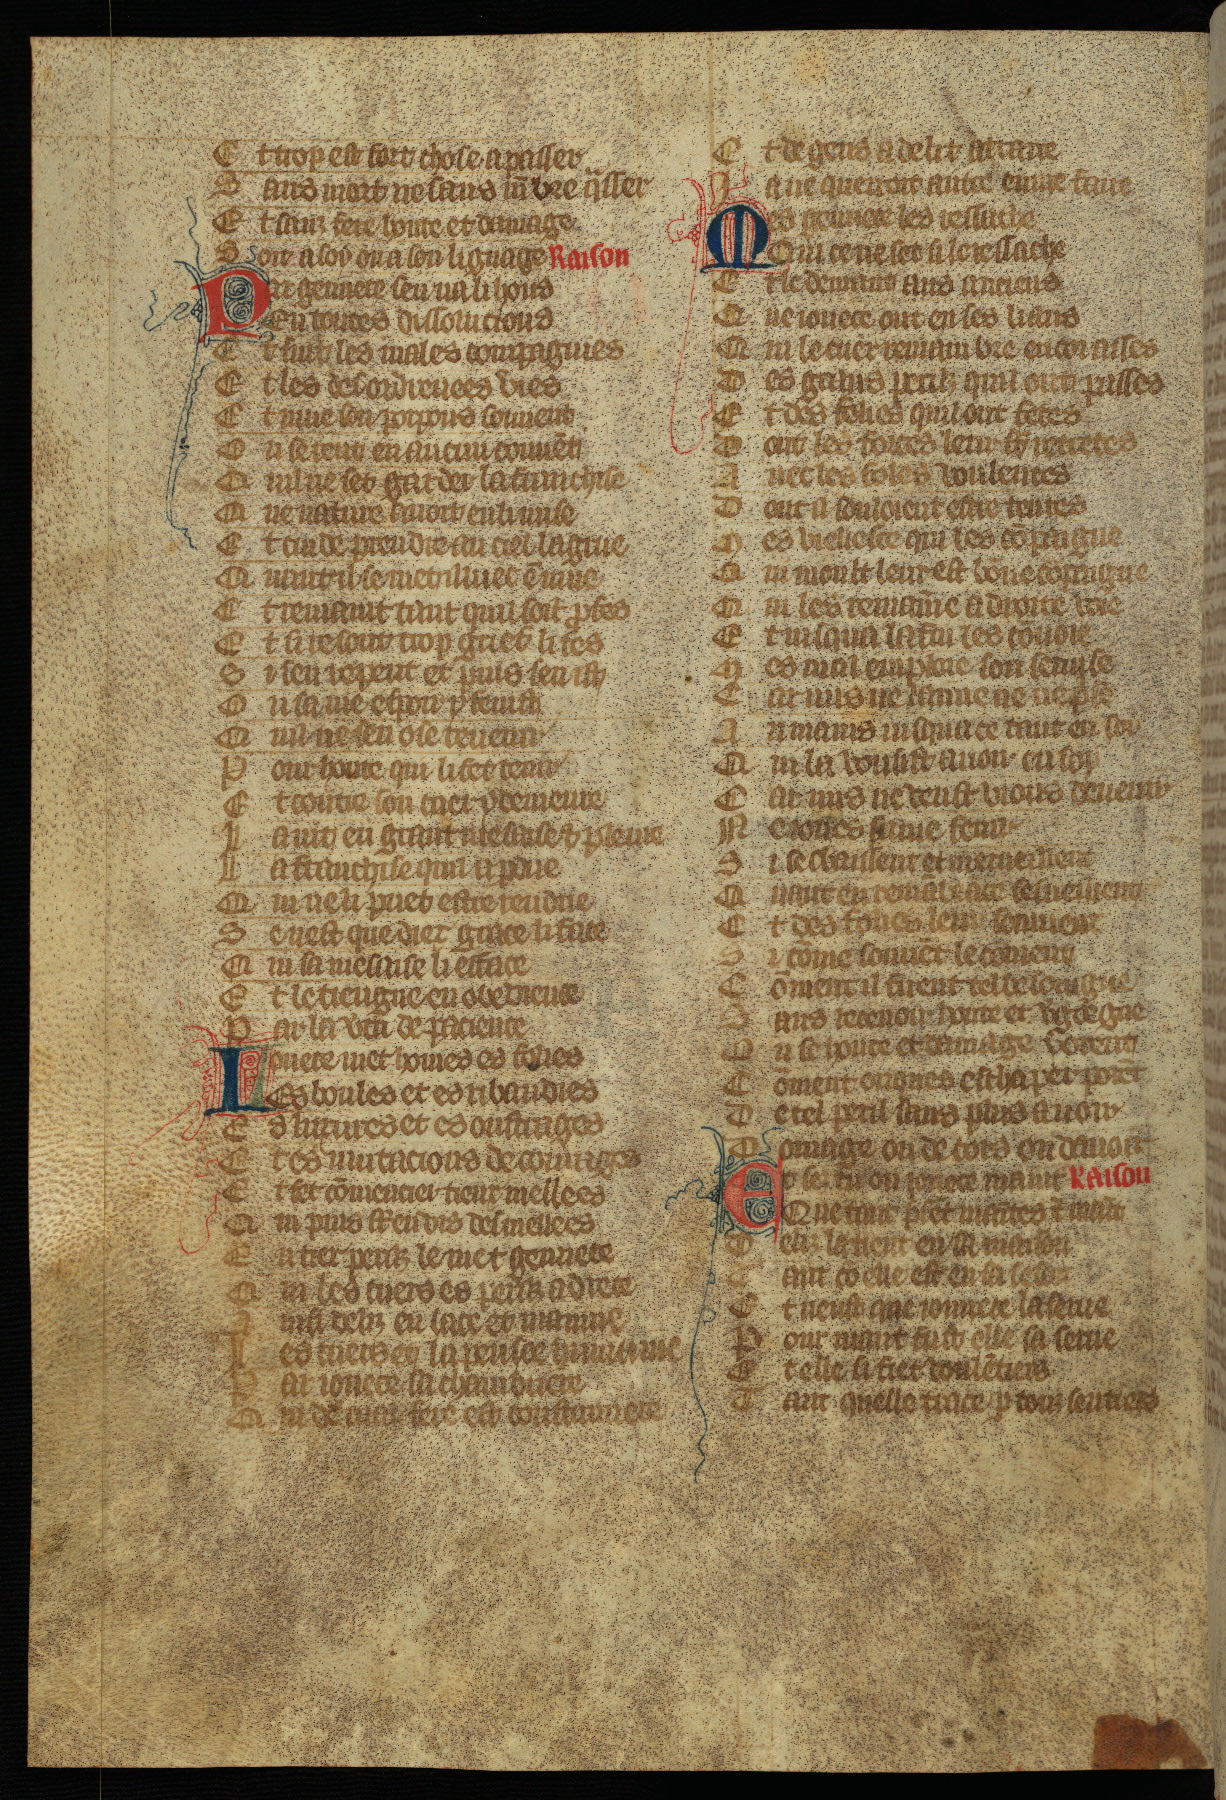 Et trop est fort chose a passer
Sans mort ne sans mẽbre q̃sser
Et sanz fere honte et damage
Soit a soy ou a son lignage Raison
Par gennece sen va li hons
En toutes dissolucions
Et suit les males compagnies
Et les desordrenees vies
Et mue son porpous souuent
Ou se rent en aucun couuẽt
Quil ne set garder la franchise
Que nature auoit en li mise
Et cuide prendre au ciel la grue
Quant il se met illuec ẽ mue
Et remaint tant quil soit p̃fes
Et sil resent trop grief li fes
Si sen repent et puis sen ist
Ou sa vie espoir y fenist
Quil ne sen ose reuenir
Pour honte qui li fet tenir
Et contre son cuer y demeure
La uit en grant mesaise et pleure
La franchise quil a p̃due
Qui ne li puet estre rendue
Se nest que diex grace li face
Qui sa mesaise li efface
Et le tiengne en obedience
Par la vertu de pacience
Ionece met hõmes es folies
Es boules et es ribaudies
Es luxures et es oustrages
Es mutacions de courages
Et fet cõmencier tieux mellees
Qui puis sont enuis desmellees
En tiex perilz le met gennece
Qui les cuers es perilz adrece
Ainsi deliz en lace et maine
Les cuers et la pensee humaine
Par ionece sa chamberiere
Qui de mal fere est coustumiere
Et de gens a delit atraire
Ja ne querroit autre euure faire
Mes gennece les ressache
Qui ce ne set si le ressache
Et le demant aus anciens
Que ionece ont en ses liens
Qui se cuer remambre encor asses
Des grans perilz quil ont passes
Et des folies quil ont fetes
Dont les forces leur a retretes
Auec les foles voulentes
Dont il souloient estre tentes
Mes viellesce qui les cõpaigne
Qui moult leur est bone compaigne
Qui les remaine a droite voie
Et iusqua la fin les cõuoie
Mes mal emploie son seruise
Car nus ne laime ne ne prise
Au mains iusqua ce tant en soy
Qui la vousist auoir en soy
Car nus ne veust viouls deuenir
Ne iones sa vie fenir
Si se esbaissent et merueillent
Quant en remanbrance se sueillent
Et des folies leur souuient
Si cõme souuẽt le couuient
Cõment il firent tel besoingne
Sans receuoir honte et vergongne
Ou se honte et damage y eurent
Cõment encores eschaper porẽt
De tel peril sans pis auoir
Ou dame ou de cors ou dauoir
Et sez tu ou ionece maint Raison
Que tant prisent maintes et maint
Deliz la tient en sa maison
Tant cõ elle est en sa seson
Et veust que ionnece la serue
Pour niant fust elle sa serue
Et elle si fiet voulẽtiers
Tant quelle trace p touz sentiers